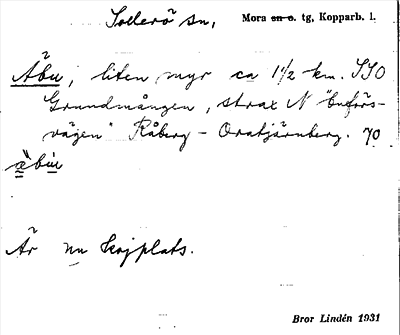 Sollerö sn, Mora sn o. tg, Kopparb. l.
Äbu, liten myr ca 1 1/2 km. SSO
Grundmången, strax N "buförs-
vägen" Råberg - Oratjärnberg. 70
äbu
Är nu kojplats.
Bror Lindén 1931